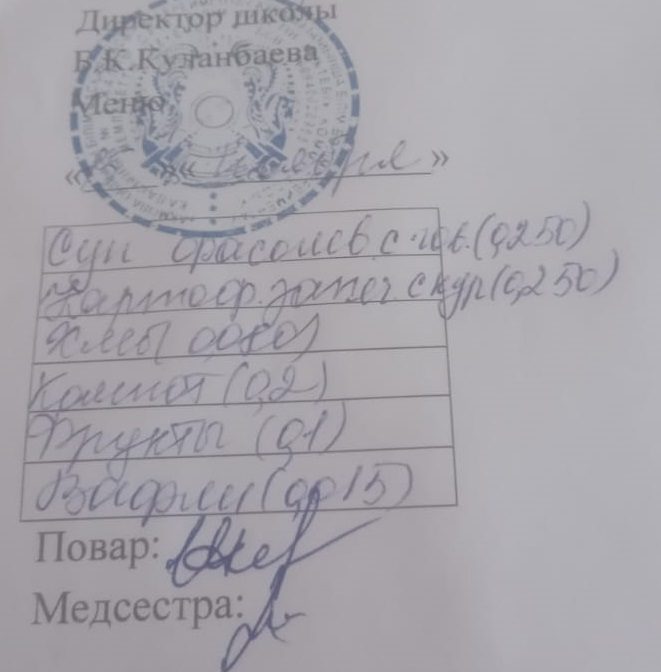 Директор школы
Б.К.Куланбаева
Меню
« » « »
Суп фасолев. с гов. (0,250)
Картоф. запеч. с кур (0,250)
Хлеб 0,080)
Компот (0,2)
Фрукты (0,1)
Вафли (0,015)
Повар:
Медсестра: